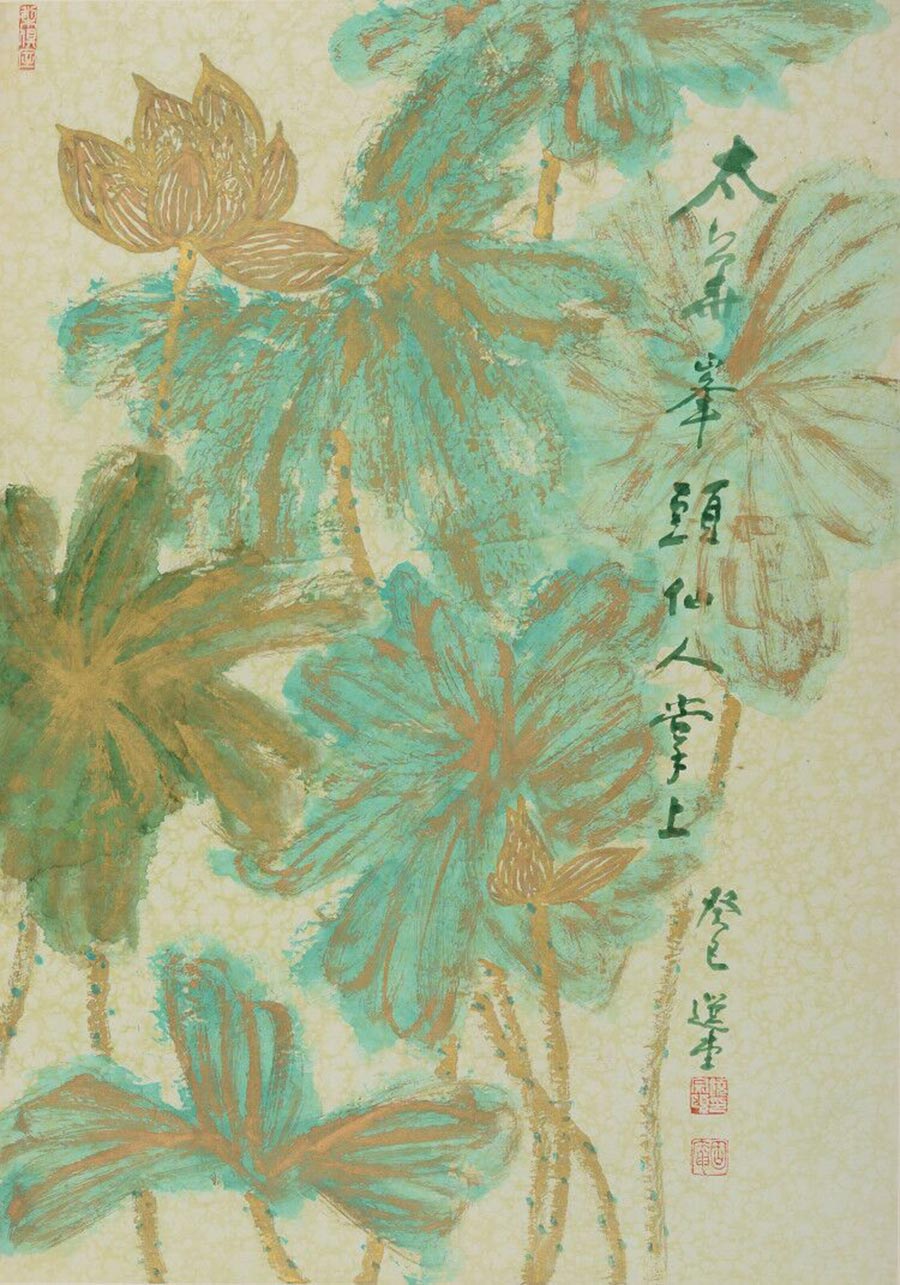 太華峯頭仙人掌上
癸巳 選堂